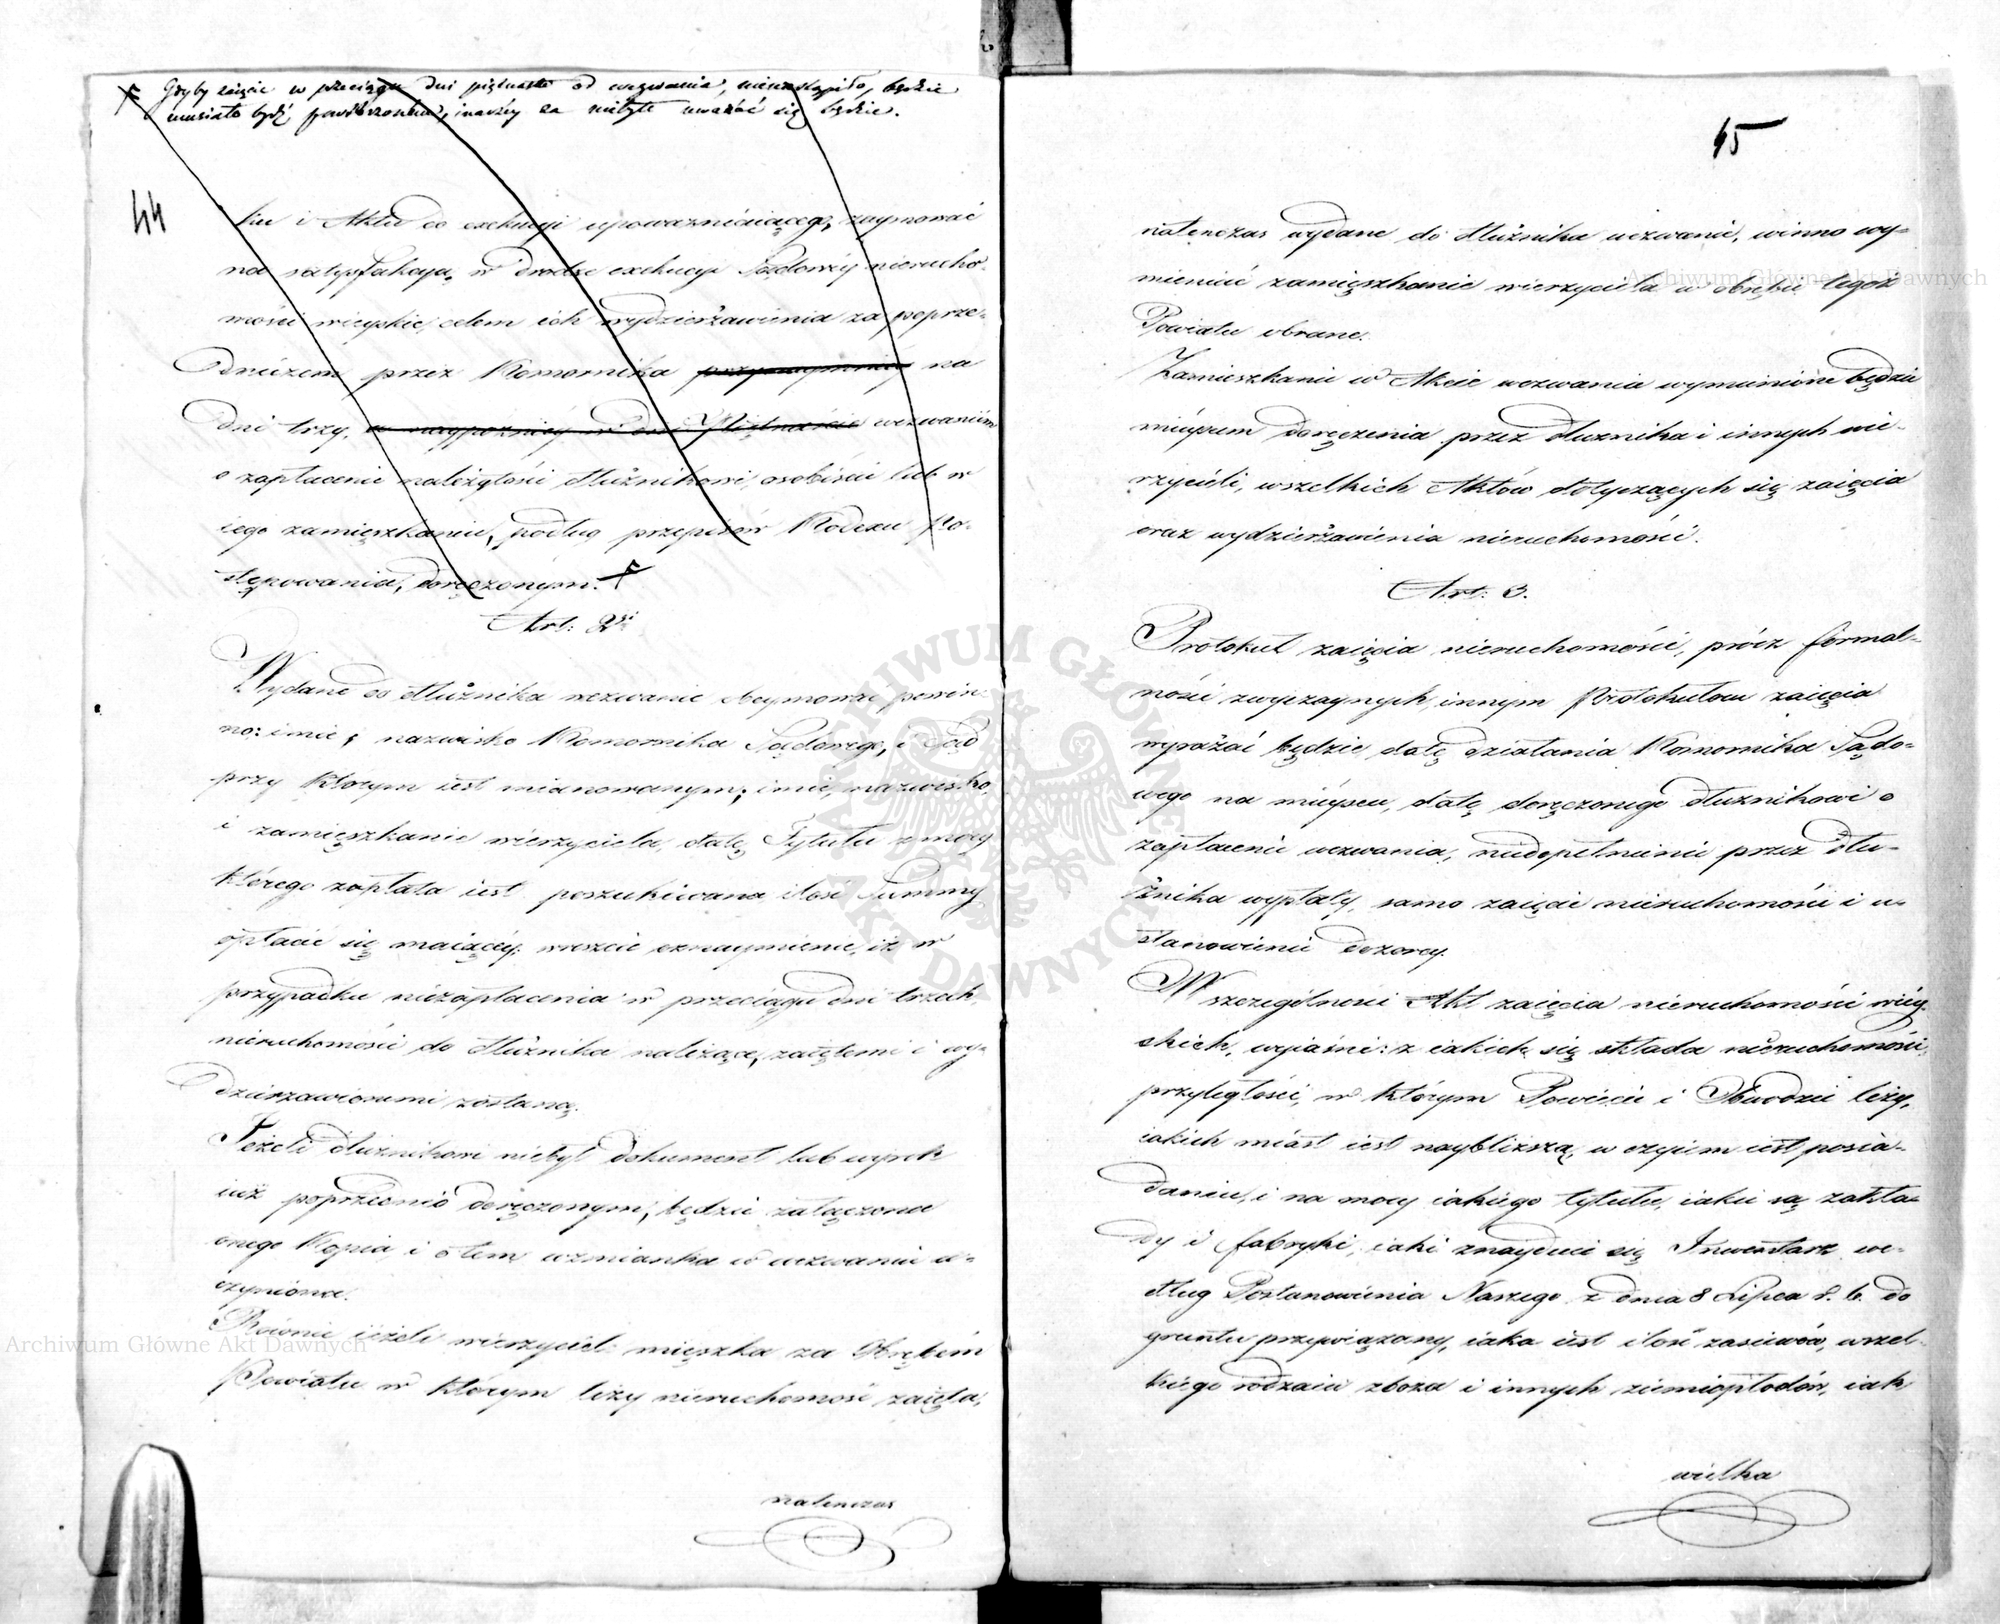 F Gdyby zaięcie w przeciągu dni piętnastu od wezwania, nienastąpiło, będzie
musiało bydź powtórzonem, inaczéy za niebyłe uważać się będzie.
44
ku i Aktu do exekucyi upoważniaiącego, zaymować
na satysfakcyą, w drodze exekucyi Sądowéy nierucho-
mości wieyskie, celem ich wydzierżawienia za poprze-
dniczem przez Komornika przynaymniéy na
dni trzy, a naypóźniéy w dni Piętnaście wezwaniem
o zapłacenie należytości dłużnikowi, osobiście lub w
iego zamięszkaniu, podług przepisów Kodexu Po-
stępowania, doręczonym. F
Art: 2gi
Wydane do dłużnika wezwanie obeymować powin-
no: imie, nazwisko Komornika Sądowego, i Sąd
przy którym iest mianowanym; imie, nazwisko,
i zamięszkanie wierzyciela, datę Tytułu z mocy
którego zapłata iest poszukiwana, ilość Summy
opłacić się maiącéy; wreszcie oznaymienie, iż w
przypadku niezapłacenia w przeciągu dni trzech,
nieruchomości do dłużnika należące, zaiętemi i wy-
dzierzawionemi zostaną.
Jeżeli dłużnikowi niebył dokument lub wyrok
iuż poprzednio doręczonym, będzie załączona
onego Kopia, i o tem wzmianka w wezwaniu u-
czyniona.
Równie ieżeli wierzyciel mięszka za Obrębem
Powiatu w którym leży nieruchomość zaięta,
natenczas
45
natenczas wydane do dłużnika wezwanie, winno wy-
mieniać zamięszkanie wierzyciela w obrębie tegoż
Powiatu obrane.
Zamieszkanie w Akcie wezwania wymienione będzie
mieyscem doręczenia przez dłużnika i innych wie-
rzycieli, wszelkich Aktów dotyczących się zaięcia
oraz wydzierżawienia nieruchomości.
Art: 3.
Protokuł zaięcia nieruchomości, prócz formal-
ności zwyczaynych, innym Protokułom zaięcia
wyrażać będzie datę działania Komornika Sądo-
wego na mieyscu, datę doręczonego dłużnikowi o
zapłacenie wezwania, niedopełnienie przez dłu-
żnika wypłaty, samo zaięcie nieruchomości i u-
stanowienie dozorcy.
W szczególności Akt zaięcia nieruchomości wiey-
skich, wyiaśni: z iakich się składa nieruchomość,
przyległości, w którym Powiecie i Obwodzie leży,
iakich miast iest naybliższą, w czyiem iest posia-
daniu, i na mocy iakiego tytułu, iakie są zakła-
dy i fabryki, iaki znayduie się Inwentarz we-
dług Postanowienia Naszego z dnia 8 Lipca r. b. do
gruntu przywiązany, iaka iest ilość zasiewów, wszel-
kiego rodzaiu zboża i innych ziemiopłodów, iak
wielka
Archiwum Główne Akt Dawnych
Archiwum Główne Akt Dawnych
ARCHIWUM GŁÓWNE AKT DAWNYCH